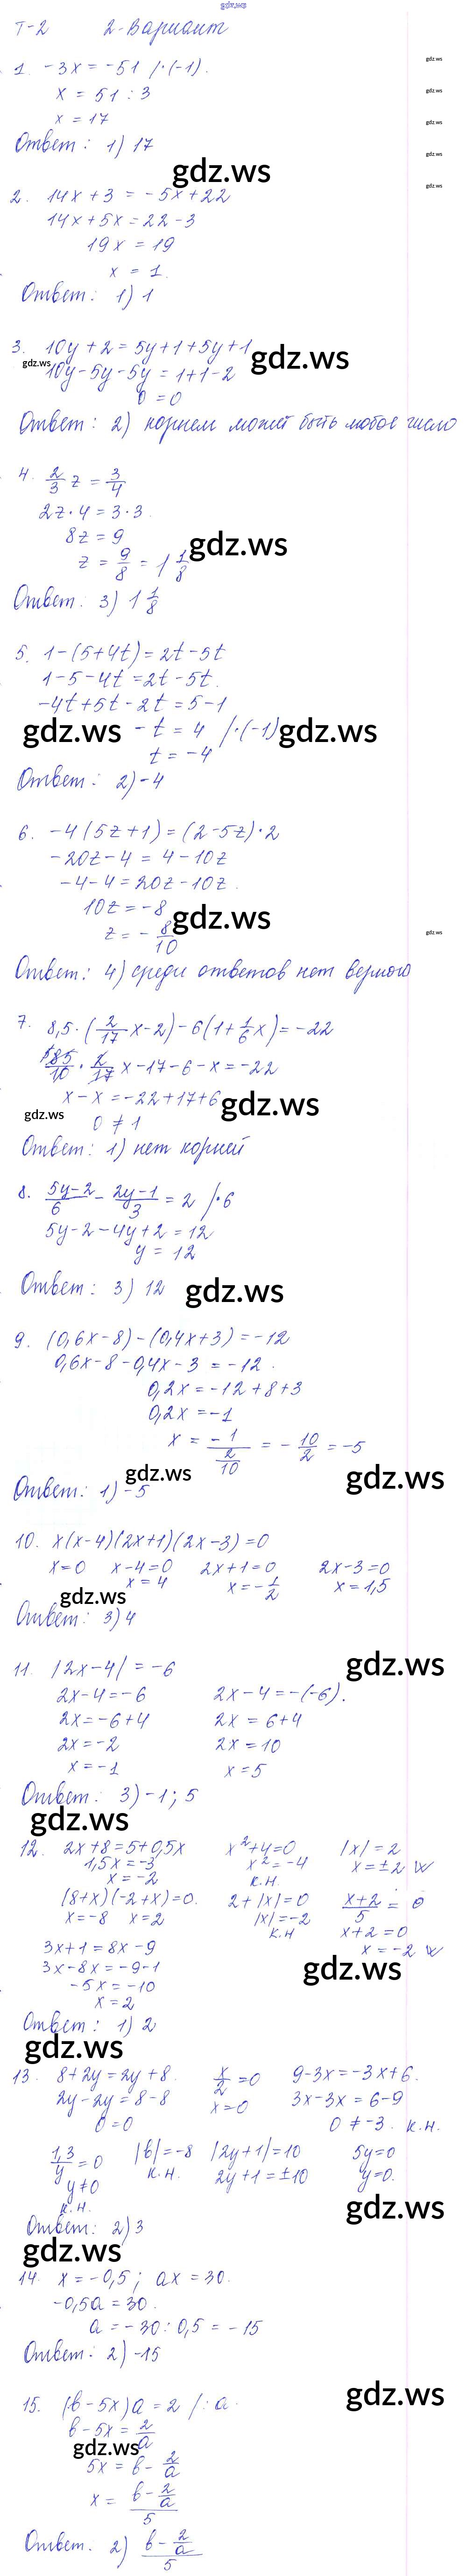 gdz.ws
Т-2 2-Вариант
1. -3x = -51 /·(-1).
x = 51 : 3
x = 17
Ответ: 1) 17
gdz.ws
2. 14x + 3 = -5x + 22
14x + 5x = 22 - 3
19x = 19
x = 1.
Ответ: 1) 1
3. 10y + 2 = 5y + 1 + 5y + 1
gdz.ws
gdz.ws
10y - 5y - 5y = 1 + 1 - 2
0 = 0
Ответ: 2) корнем может быть любое число
4. 2/3 z = 3/4
2z · 4 = 3 · 3
8z = 9
gdz.ws
z = 9/8 = 1 1/8
Ответ: 3) 1 1/8
5. 1 - (5 + 4t) = 2t - 5t
1 - 5 - 4t = 2t - 5t.
-4t + 5t - 2t = 5 - 1
gdz.ws - t = 4 /·(-1) gdz.ws
t = -4
Ответ: 2) -4
6. -4(5z + 1) = (2 - 5z) · 2
-20z - 4 = 4 - 10z
-4 - 4 = 20z - 10z.
10z = -8
gdz.ws
z = - 8/10
Ответ: 4) среди ответов нет верного
7. 8,5 · (2/17 x - 2) - 6(1 + 1/6 x) = -22
85/10 · 2/17 x - 17 - 6 - x = -22
x - x = -22 + 17 + 6
gdz.ws gdz.ws
0 ≠ 1
Ответ: 1) нет корней
8. (5y-2)/6 - (2y-1)/3 = 2 /·6
5y - 2 - 4y + 2 = 12
y = 12
Ответ: 3) 12
gdz.ws
9. (0,6x - 8) - (0,4x + 3) = -12
0,6x - 8 - 0,4x - 3 = -12.
0,2x = -12 + 8 + 3
0,2x = -1
x = -1/(2/10) = - 10/2 = -5
gdz.ws gdz.ws
Ответ: 1) -5
10. x(x-4)(2x+1)(2x-3) = 0
x = 0 x - 4 = 0 2x + 1 = 0 2x - 3 = 0
x = 4 x = - 1/2 x = 1,5
gdz.ws
Ответ: 3) 4
gdz.ws
11. |2x - 4| = -6
2x - 4 = -6 2x - 4 = -(-6).
2x = -6 + 4 2x = 6 + 4
2x = -2 2x = 10
x = -1 x = 5
Ответ: 3) -1; 5
gdz.ws
12. 2x + 8 = 5 + 0,5x x² + 4 = 0 |x| = 2
1,5x = -3 x² = -4 x = ±2 W
x = -2 к.н.
(8+x)(-2+x) = 0. 2 + |x| = 0 (x+2)/5 = 0
x = -8 x = 2 |x| = -2 x + 2 = 0
к.н x = -2 W
3x + 1 = 8x - 9
3x - 8x = -9 - 1
gdz.ws
-5x = -10
x = 2
Ответ: 1) 2
gdz.ws
13. 8 + 2y = 2y + 8. x/2 = 0 9 - 3x = -3x + 6.
2y - 2y = 8 - 8 x = 0 3x - 3x = 6 - 9
0 = 0 0 ≠ -3. к.н.
1,3/y = 0 |b| = -8 |2y + 1| = 10 5y = 0
y ≠ 0 к.н. 2y + 1 = ±10 y = 0.
к.н.
gdz.ws
Ответ: 2) 3
gdz.ws
14. x = -0,5; ax = 30.
-0,5a = 30.
a = -30 : 0,5 = -15
Ответ: 2) -15
gdz.ws
15. (b - 5x)a = 2 /: a.
b - 5x = 2/a
gdz.ws
5x = b - 2/a
x = (b - 2/a)/5
Ответ. 2) (b - 2/a)/5
gdz.ws
gdz.ws
gdz.ws
gdz.ws
gdz.ws
gdz.ws